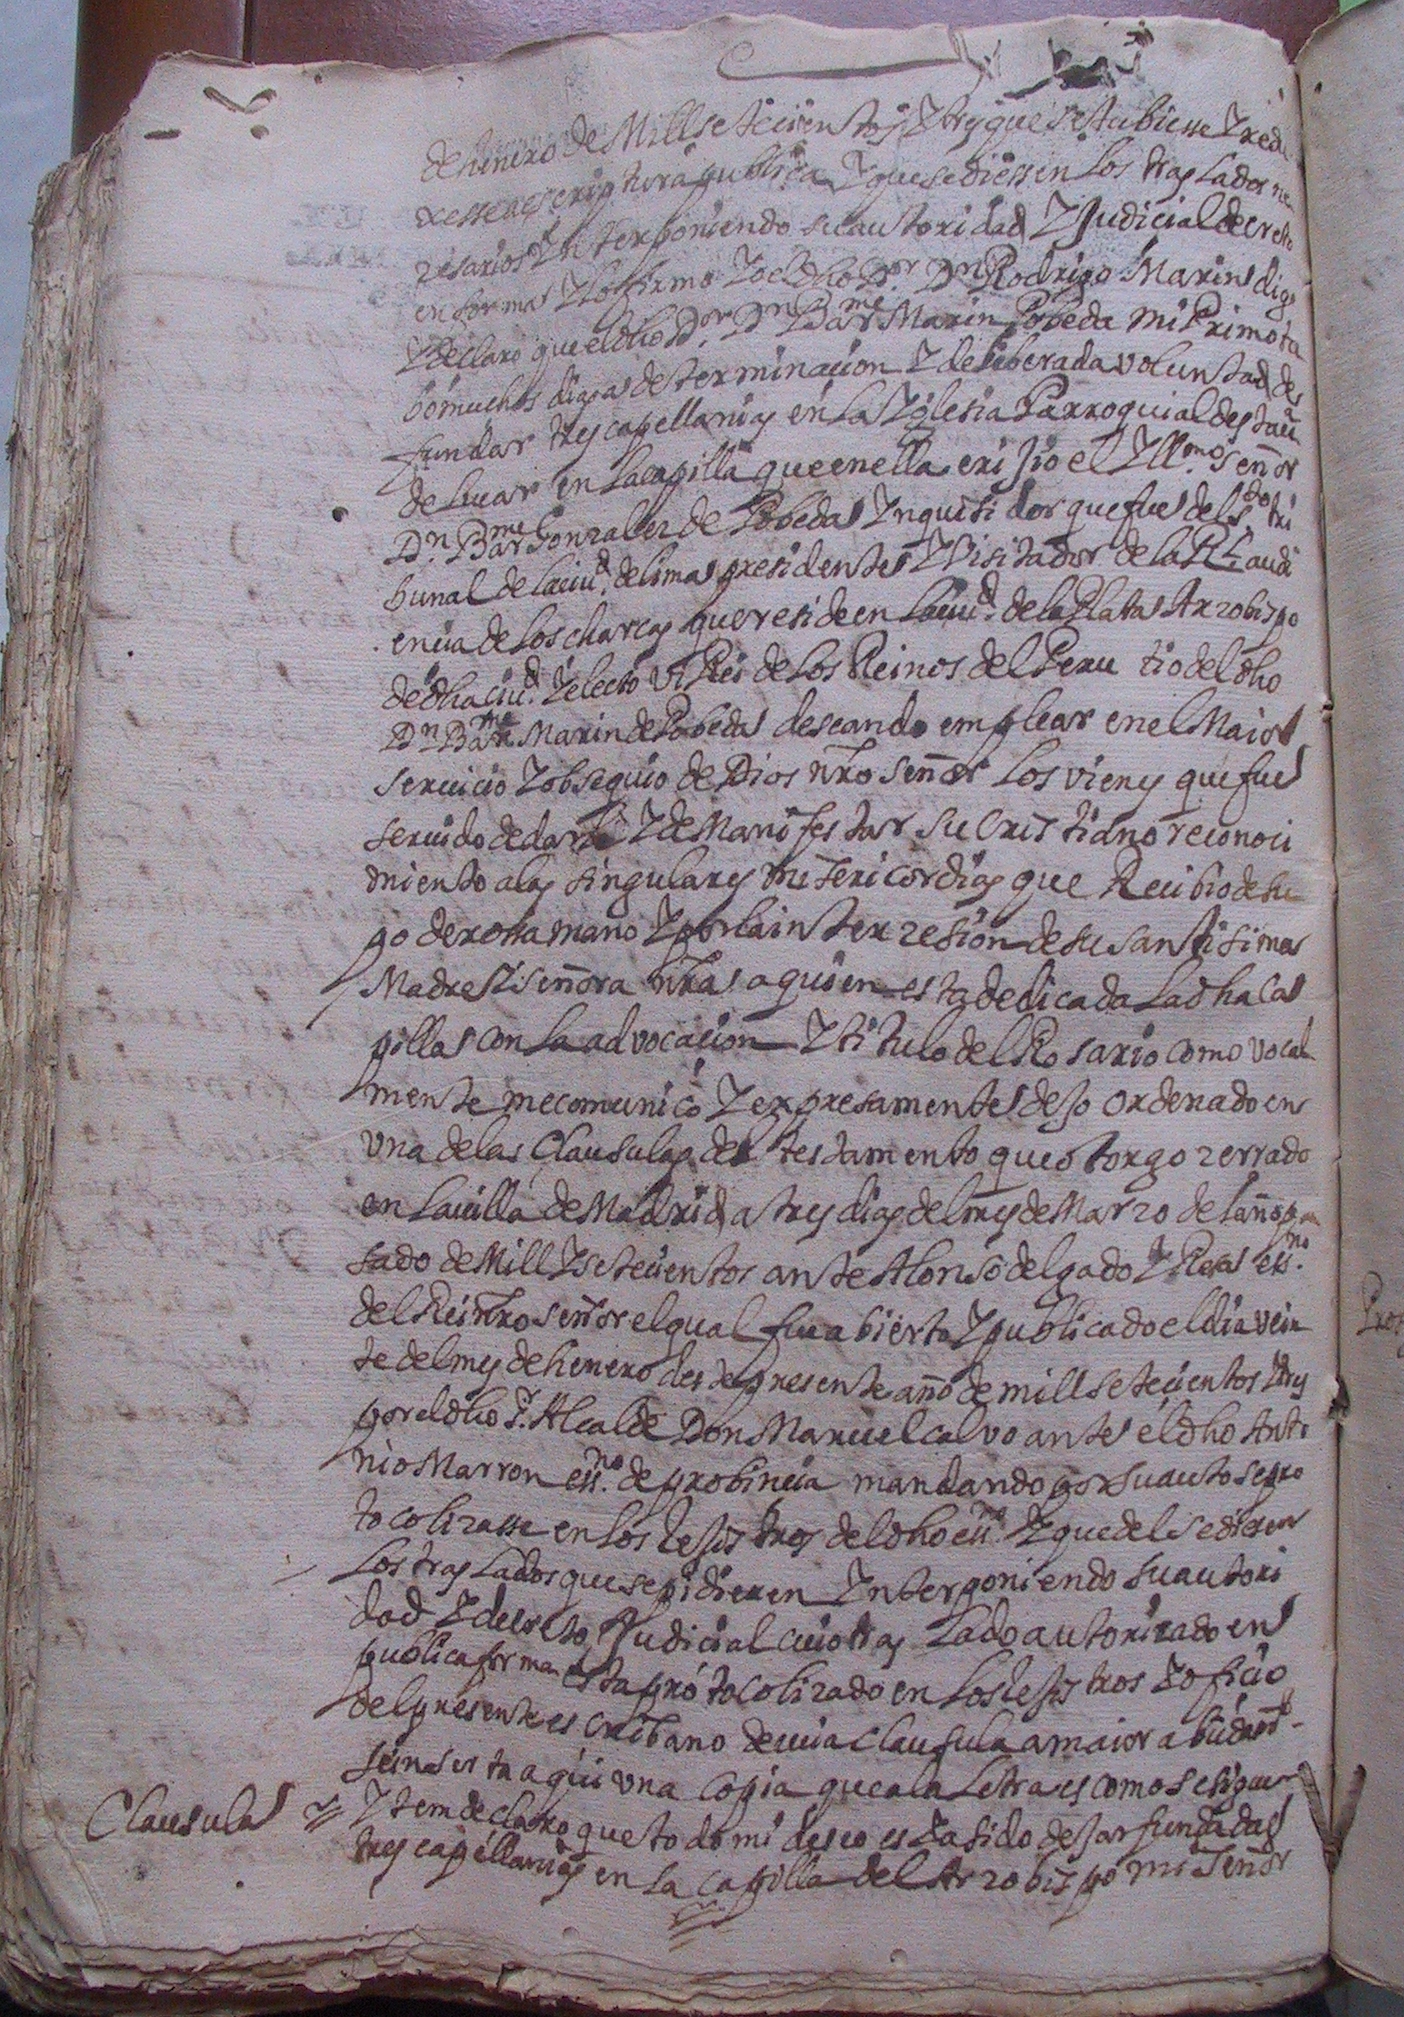 de henero de Mill setecientos Y trs y que se tubiesse Y redu
xesse a escriptura publica Y que se diessen los traslados ne
zesarios Ynterponiendo su autoridad Y Judicial decreto
en forma Y lo firmo Yo el dho Dor. Dn Rodrigo Marin digo
Y declaro que el dho Dor. Dn Barme Marin Pobeda mi Primo ta
bo muchos dias a determinacion Y deliberada voluntad de
fundar tres capellanias en la Yglesia Parroquial desta vi
de lucar en la capilla que en ella erijio el Yllmo. Señor
Dn. Barme Gonzalez de Pobeda Ynquisidor que fue del sto. tri
bunal de la ciud. de lima presidente Y Visitador de la Rl. audi
encia de los charcas que reside en la ciud. de la Plata Arzobispo
de dha ciud. Y electo Vi Rei de los Reinos del Peru tio del dho
Dn Barme Marin de Pobeda deseando emplear en el Maior
seruicio Y obsequio de Dios nro señor los vienes que fue
seruido de darle Y de Manifestar su Cristiano reconoci
miento a las singulares misericordias que Recibio de su
poderossa mano Y por la interzesion de su santisima
Madre Y señora nra a quien esta dedicada la dha ca
pilla con la advocacion Y titulo del Rosario como vocal
mente me comunicó Y expresamente dejo ordenado en
vna de las Clausulas del testamento que otorgo zerrado
en la villa de Madrid a tres dias del mes de Marzo del año pa
sado de Mill Y setecientos ante Alonso delgado Y Rera ess.no
del Rei Nro señor el qual fue abierto Y publicado el dia vein
te del mes de henero deste presente año de mill setecientos Y trs
por el dho Sr. Alcalde Don Manuel calvo ante el dho Anto
nio Marron ess.no de probincia mandando por su auto se pro
tocolizasse en los rejistros del dho ess.no Y que del se diesen
los traslados que se pidieren Ynterponiendo su autori
dad Y decreto Judicial cuio traslado autorizado en
publica forma esta prótocolizado en los rejistros Y oficio
del presente escribano de cuia Clausula a maior abundamto.
se inserta aqui vna Copia que a la Letra es como se sigue
Clausula Y tem declaro que todo mi deseo es Y a sido dejar fundadas
tres capellanias en la capilla del Arzobispo mi Señor